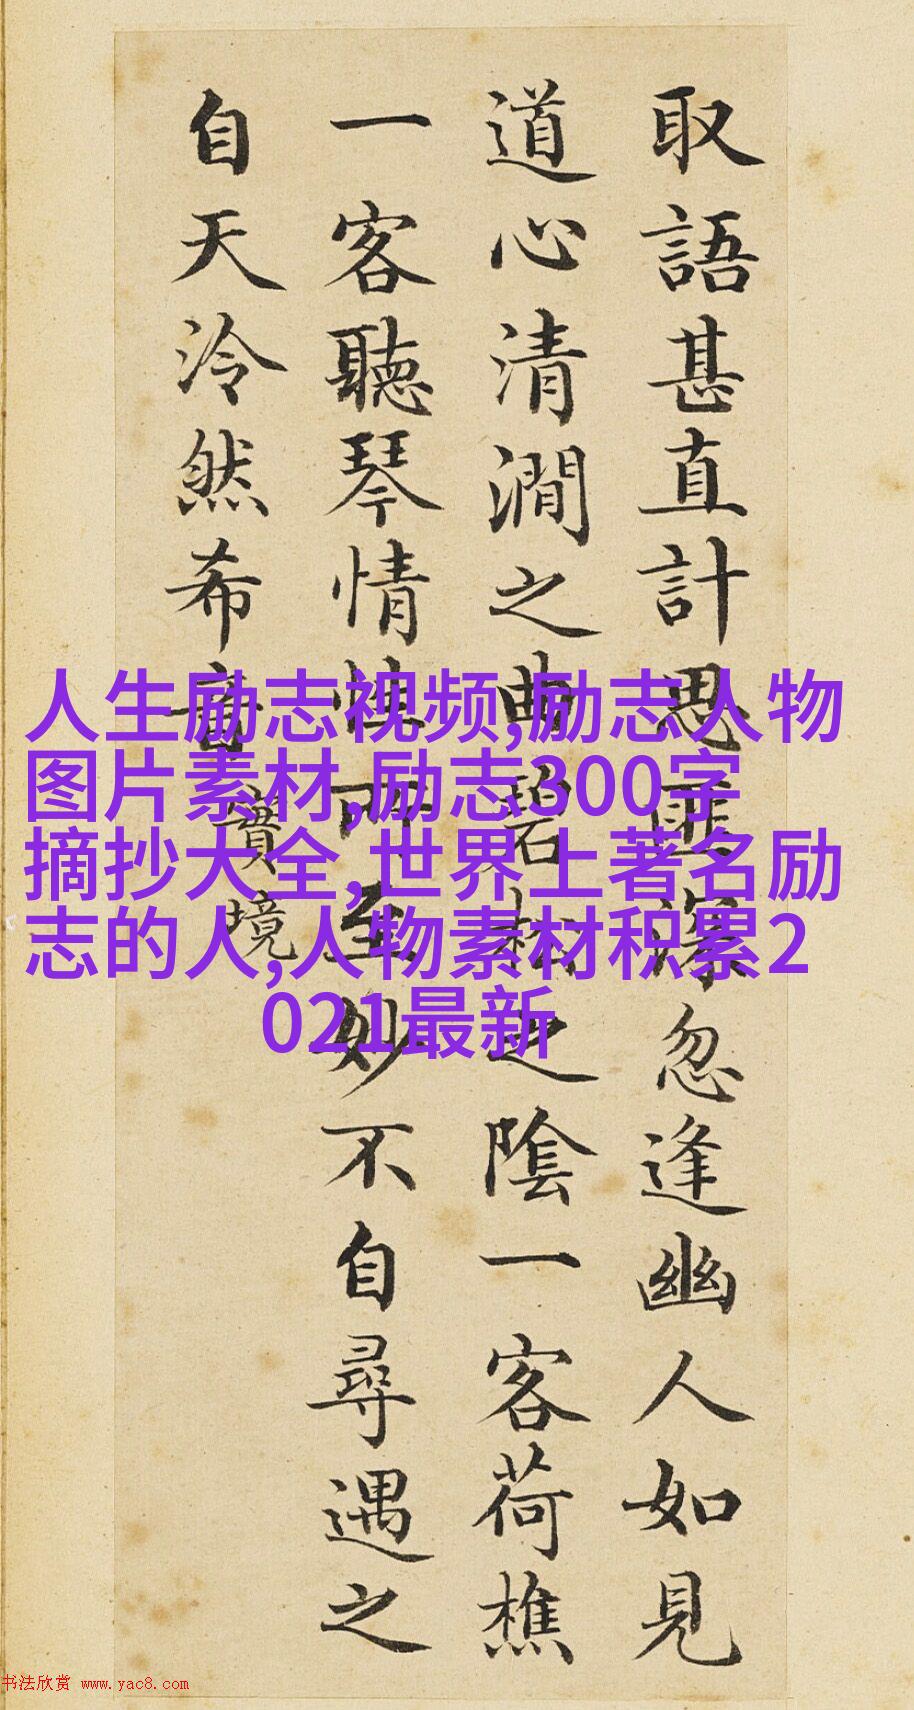 取語甚直計思匪深忽逢幽人如見
道心清澗之曲碧松之陰一客荷樵
一客聽琴情所至妙不自尋遇之
自天泠然希音
實境
人生励志视频,励志人物
图片素材,励志300字
摘抄大全,世界上著名励
志的人,人物素材积累2
021最新
书法欣赏 www.yac8.com